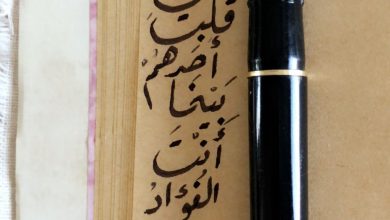 قلبت
أحدهم
بينما
أنت
الفؤاد